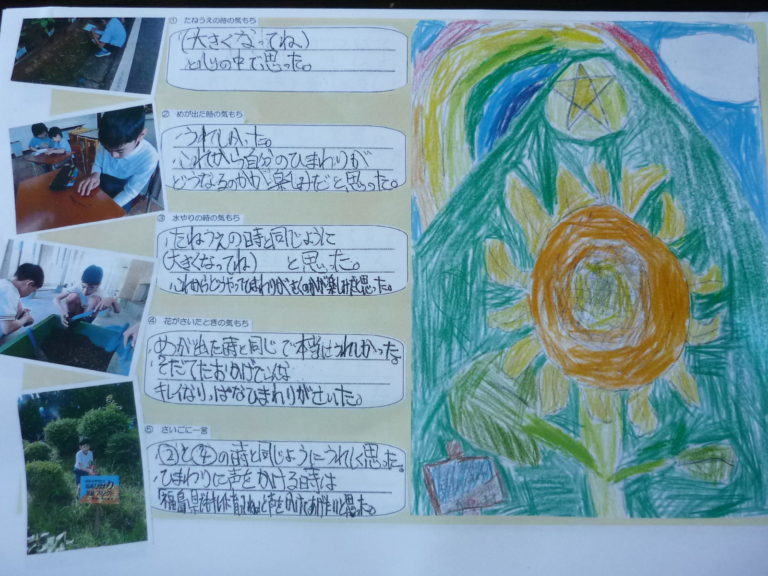 ① たねうえの時の気もち
(大きくなってね。)
と心の中で思った。
② めが出た時の気もち
うれしかった。
これから自分のひまわりが
どうなるのかが楽しみだと思った。
③ 水やりの時の気もち
たねうえの時と同じように
(大きくなってね) と思った。
これからどうやってひまわりが
④ 花がさいたときの気もち
めが出た時と同じで本当にうれしかった。
そだてたおかげでこんな
キレイなりっぱなひまわりがさいた。
⑤ さいごに一言
②と④の時と同じようにうれしく思った。
ひまわりに声をかける時は
福島県
と思った。